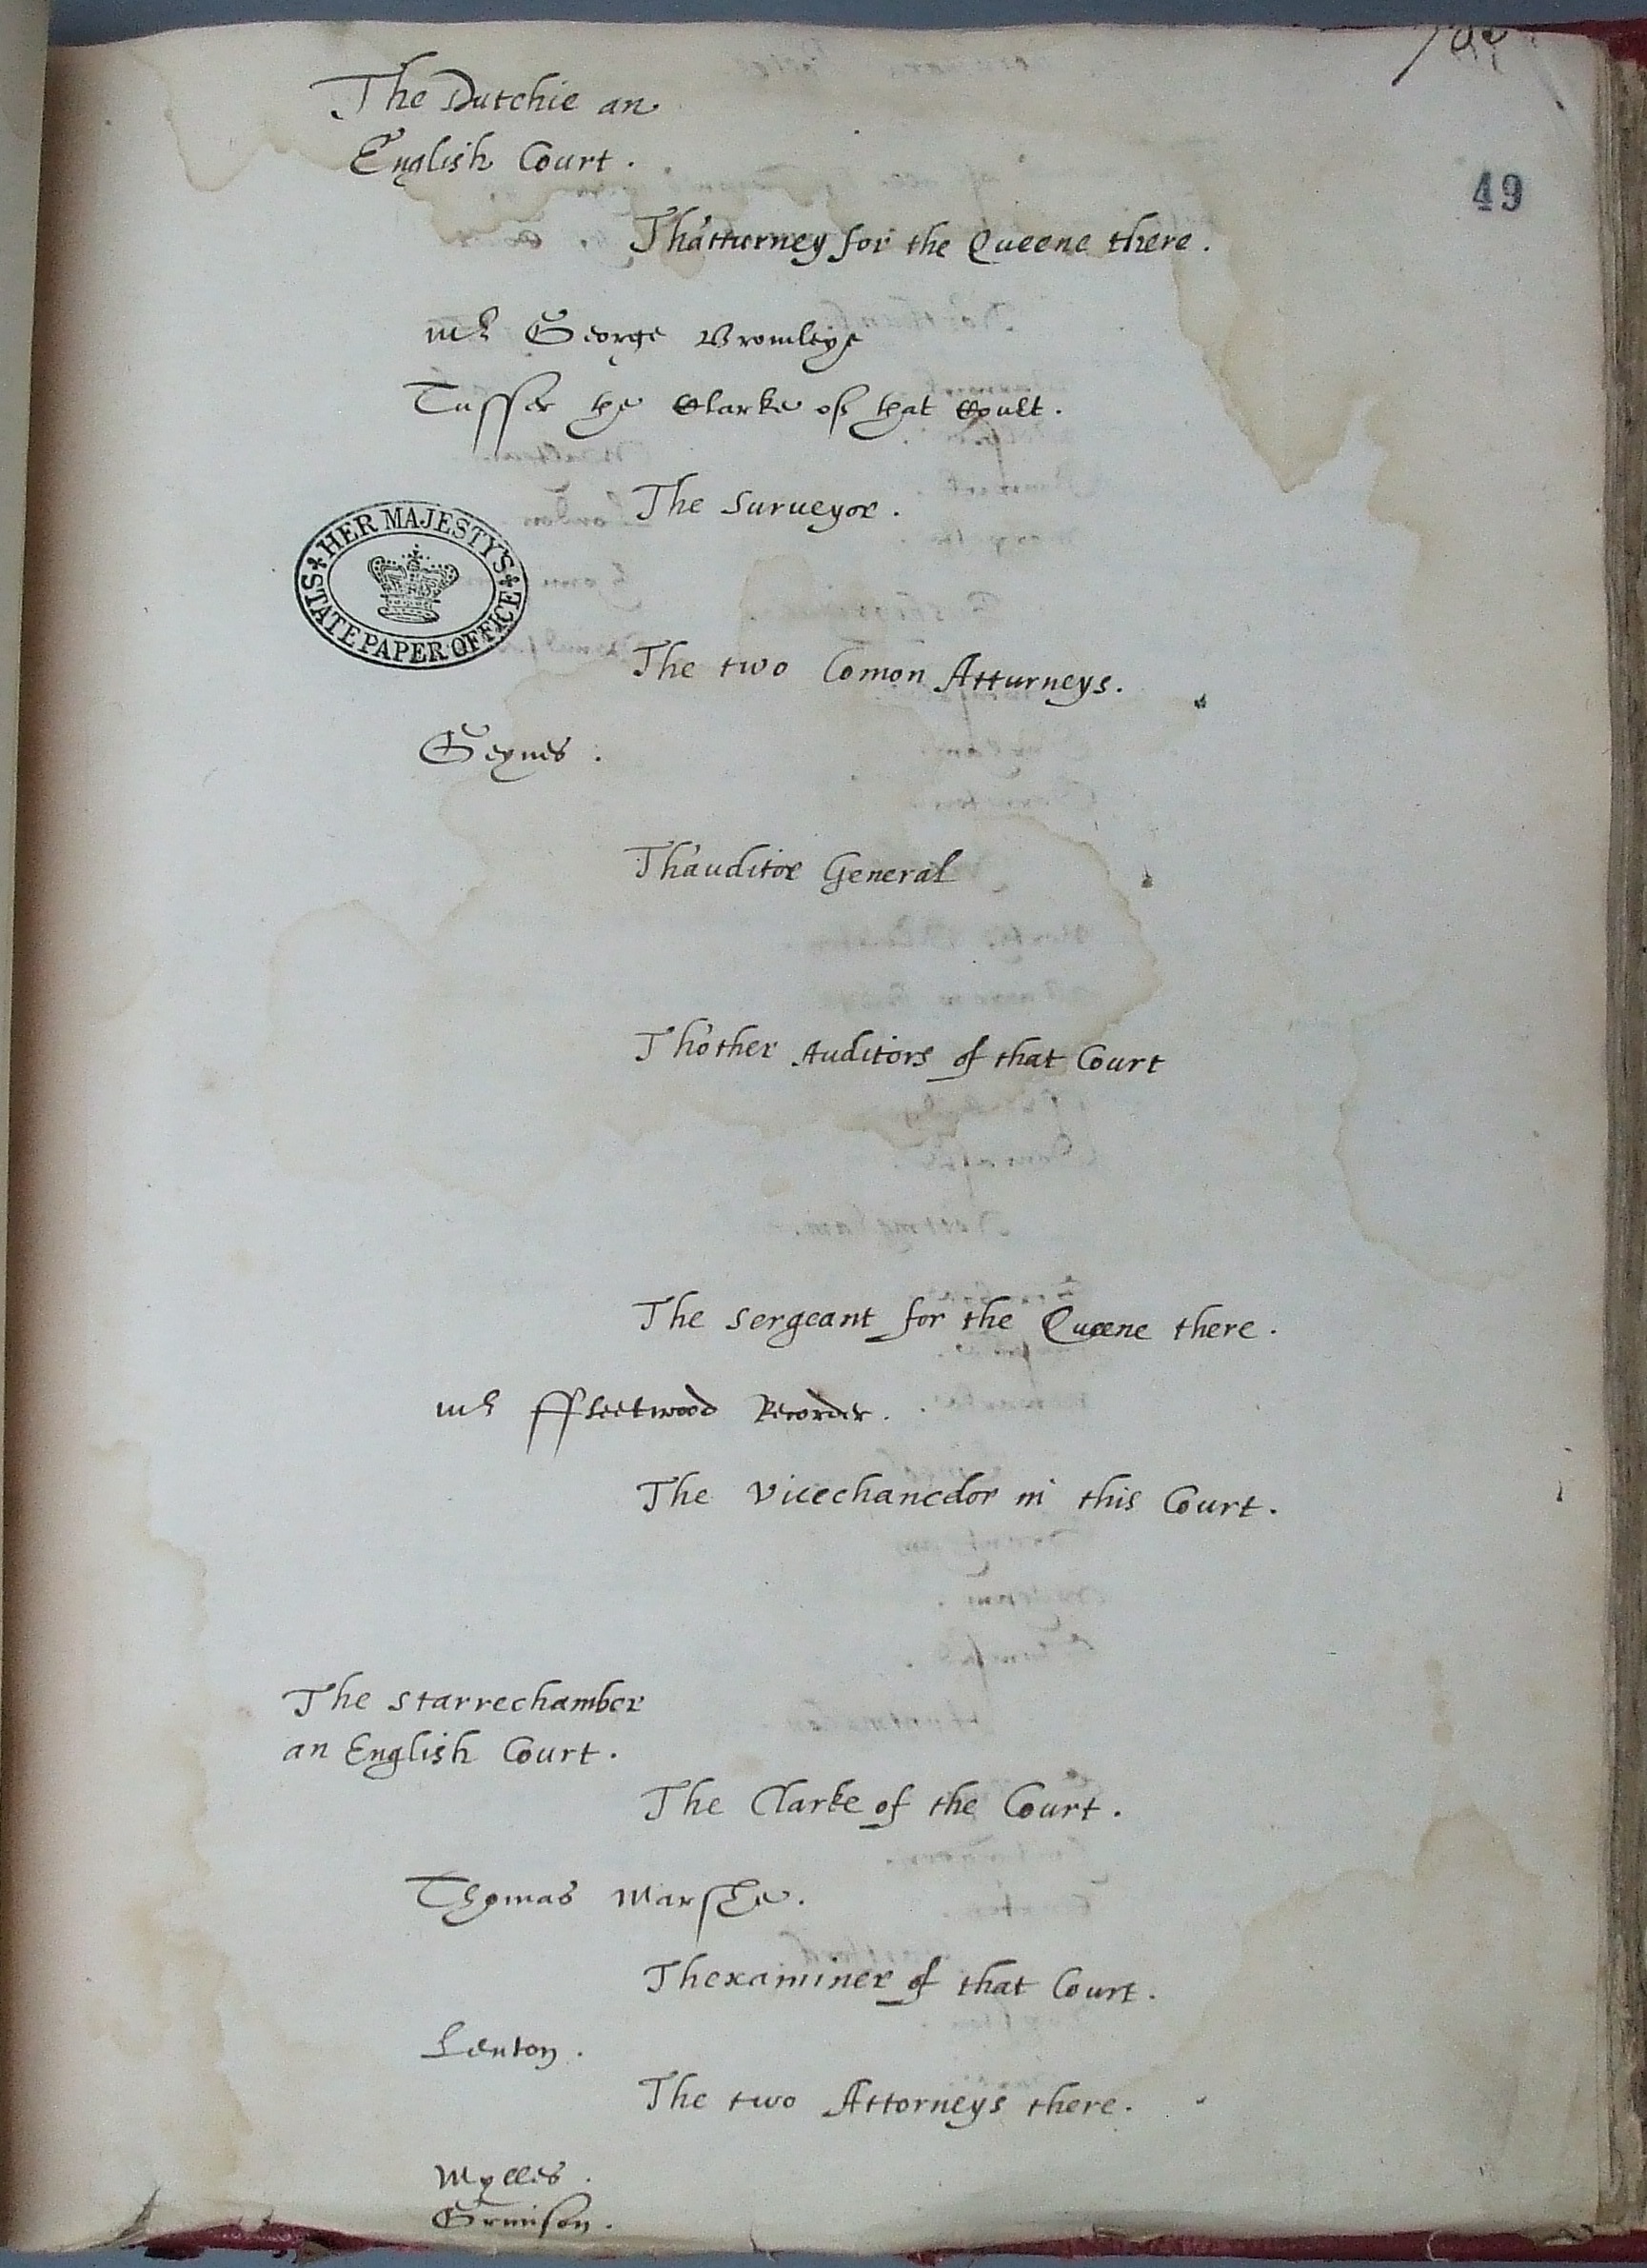 The Dutchie an
English Court.
49
Thatturney for the Queene there.
mr George Bromleye
Tusser the Clarke of that Court.
The surueyor.
HER MAJESTY'S STATE PAPER OFFICE
The two Comon Atturneys.
Geynes.
Thauditor General
Thother Auditors of that Court
The sergeant for the Queene there.
mr ffleetwood Recorder.
The vicechancelor in this Court.
The starrechamber
an English Court.
The Clarke of the Court.
Thomas Marshe.
Thexaminer of that Court.
Lenton.
The two Attorneys there.
Mylles.